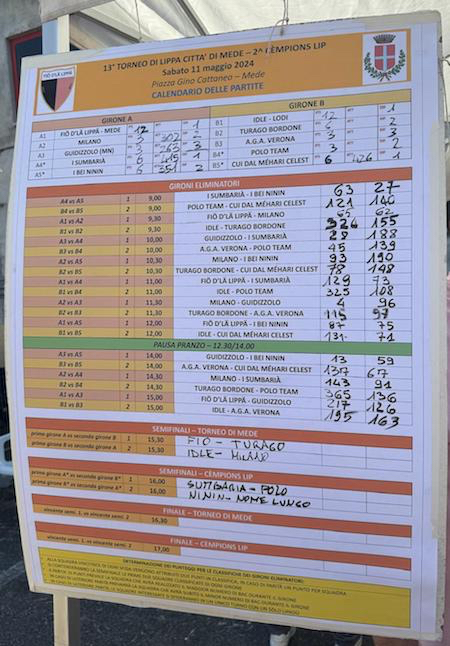 FIÖ D'LA LIPPÄ
13° TORNEO DI LIPPA CITTA' DI MEDE – 2^ CÈMPIONS LIP
Sabato 11 maggio 2024
Piazza Gino Cattaneo - Mede
CALENDARIO DELLE PARTITE
GIRONE A
A1 FIÖ D'LÄ LIPPÄ - MEDE 12
A2 MILANO 302
A3 GUIDIZZOLO (MN) 263 3
A4* I SUMBARIÀ 6 415 1
A5* I BEI NININ 6 351 2
GIRONE B
B1 IDLE - LODI 12 1
B2 TURAGO BORDONE 2
B3 A.G.A. VERONA 3
B4* POLO TEAM 3
B5* CUI DAL MÉHARI CELEST 6 426 1
GIRONI ELIMINATORI
A4 vs A5 1 9,00 I SUMBARIÀ - I BEI NININ 63 27
B4 vs B5 2 9,00 POLO TEAM - CUI DAL MÉHARI CELEST 121 140
A1 vs A2 1 9,30 FIÖ D'LÄ LIPPÄ - MILANO 65 62
B1 vs B2 2 9,30 IDLE - TURAGO BORDONE 324 155
A3 vs A4 1 10,00 GUIDIZZOLO - I SUMBARIÀ 28 188
B3 vs B4 2 10,00 A.G.A. VERONA - POLO TEAM 45 139
A2 vs A5 1 10,30 MILANO - I BEI NININ 93 190
B2 vs B5 2 10,30 TURAGO BORDONE - CUI DAL MÉHARI CELEST 78 148
A1 vs A4 1 11,00 FIÖ D'LÄ LIPPÄ - I SUMBARIÀ 129 73
B1 vs B4 2 11,00 IDLE - POLO TEAM 325 108
A2 vs A3 1 11,30 MILANO - GUIDIZZOLO 4 96
B2 vs B3 2 11,30 TURAGO BORDONE - A.G.A. VERONA 115 97
A1 vs A5 1 12,00 FIÖ D'LÄ LIPPÄ - I BEI NININ 87 75
B1 vs B5 2 12,00 IDLE - CUI DAL MÉHARI CELEST 131 71
PAUSA PRANZO - 12.30/14.00
A3 vs A5 1 14,00 GUIDIZZOLO - I BEI NININ 13 59
B3 vs B5 2 14,00 A.G.A. VERONA - CUI DAL MÉHARI CELEST 137 67
A2 vs A4 1 14,30 MILANO - I SUMBARIÀ 143 91
B2 vs B4 2 14,30 TURAGO BORDONE - POLO TEAM 365 136
A1 vs A3 1 15,00 FIÖ D'LÄ LIPPÄ - GUIDIZZOLO 217 126
B1 vs B3 2 15,00 IDLE - A.G.A. VERONA 195 163
SEMIFINALI - TORNEO DI MEDE
primo girone A vs secondo girone B 1 15,30 FIO - TURAGO
primo girone B vs secondo girone A 2 15,30 IDLE - MILANO
SEMIFINALI - CÈMPIONS LIP
primo girone A* vs secondo girone B* 1 16,00 SUMBARIA - POLO
primo girone B* vs secondo girone A* 2 16,00 NININ - NOME LUNGO
FINALE - TORNEO DI MEDE
vincente semi. 1 vs vincente semi. 2 16,30
FINALE - CÈMPIONS LIP
vincente semi. 1 vs vincente semi. 2 17,00
DETERMINAZIONE DEI PUNTEGGI PER LE CLASSIFICHE DEI GIRONI ELIMINATORI: